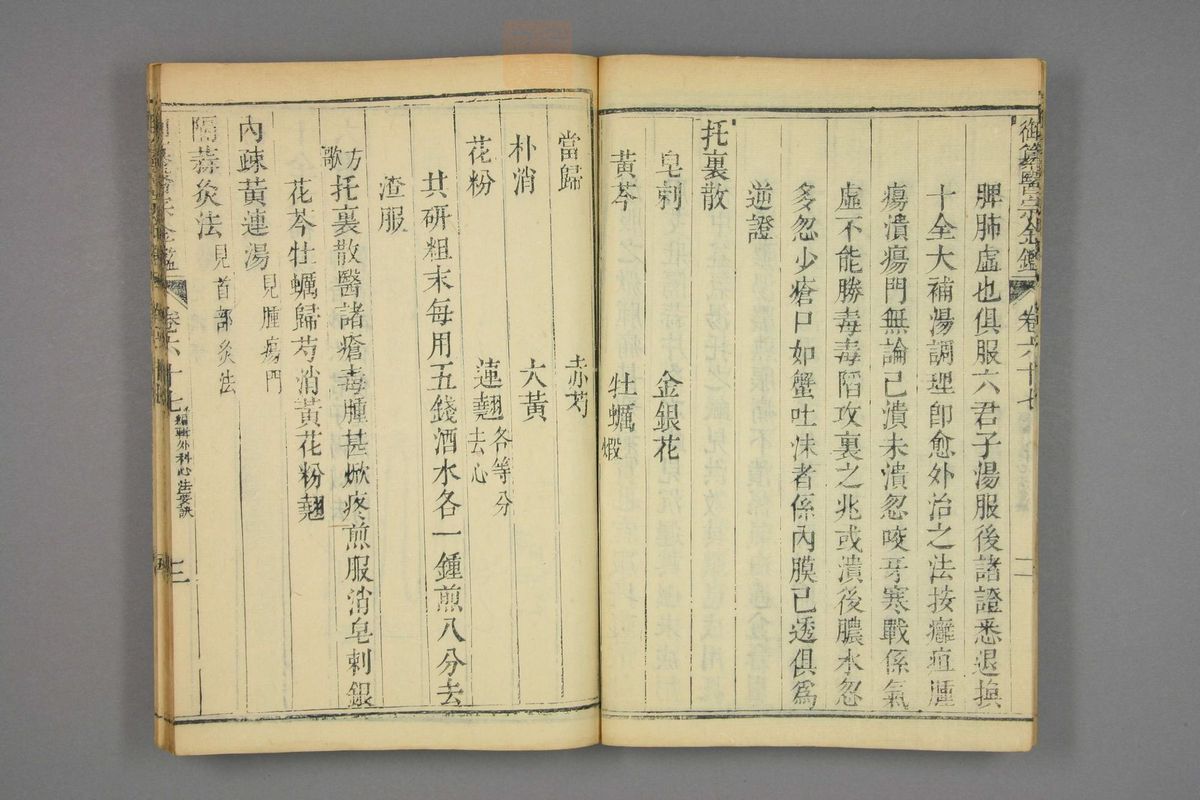 御纂醫宗金鑑 卷六十七
脾肺虛也俱服六君子湯服後諸證悉退換
十全大補湯調理卽愈外治之法按癰疽腫
瘍潰瘍門無論已潰未潰忽咬牙寒戰係氣
虛不能勝毒毒陷攻裏之兆或潰後膿水忽
多忽少瘡口如蟹吐沫者係內膜已透俱為
逆證
托裏散
皂刺 金銀花
黃芩 牡蠣煅
當歸 赤芍
朴消 大黃
花粉 連翹去心各等分
共研粗末每用五錢酒水各一鍾煎八分去
渣服
方歌 托裏散醫諸瘡毒腫甚焮疼煎服消皂刺銀
花芩牡蠣歸芍消黃花粉翹
內疎黃連湯見腫瘍門
隔蒜灸法見首部灸法
卷六十七 編輯外科心法要訣